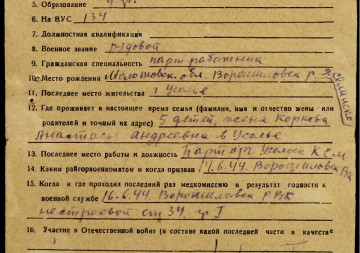 5. Образование 4 гр.
6. На ВУС 134
7. Должностная квалификация
8. Военное звание рядовой
9. Гражданская специальность парт работник
10. Место рождения Молотовск. обл. Ворошиловск. р.
11. Последнее место жительства г Усолье
12. Где проживает в настоящее время семья (фамилия, имя и отчество жены или
родителей и точный их адрес) 5 детей, жена
Анастасия Андреевна в Усолье
13. Последнее место работы и должность Парторг Усолоск
14. Каким райгорвоенкоматом и когда призван 17.6.44. Ворошиловск
15. Когда и где проходил последний раз медкомиссию и результат годности к
военной службе 16.6.44 Ворошиловск РВК
нестроевой ст 34. гр I
16. Участие в Отечественной войне (в составе какой последней части в качестве